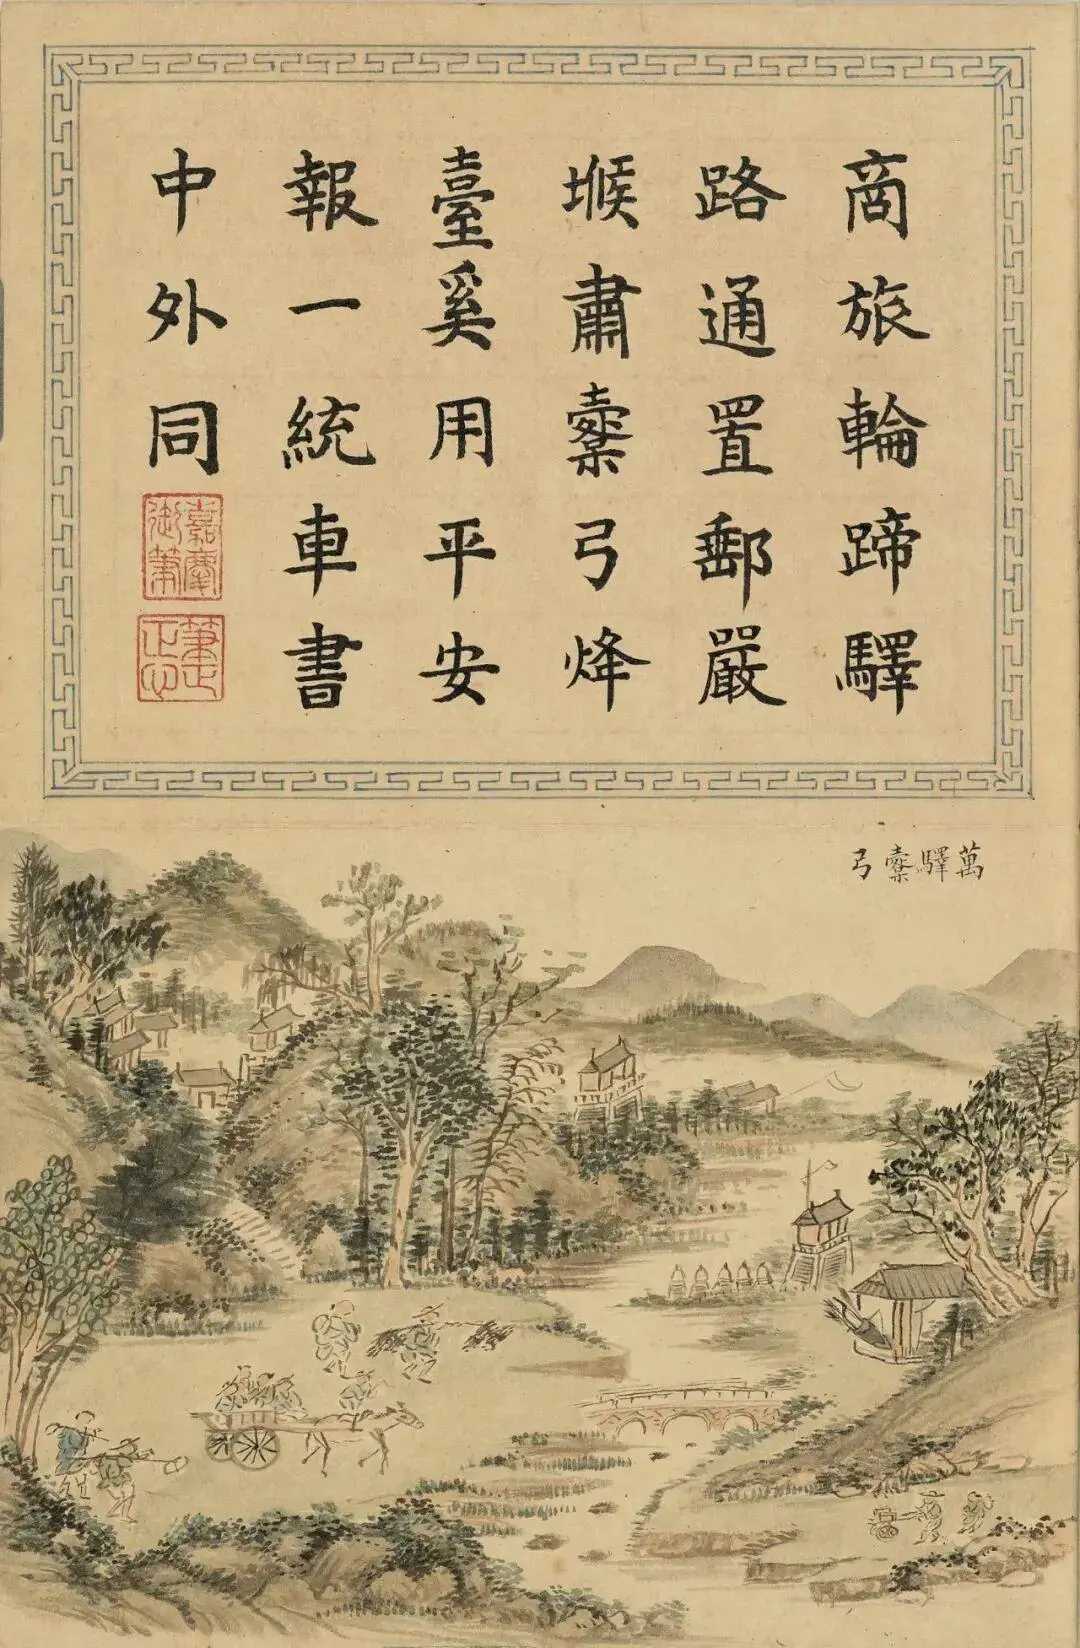 商旅輪蹄驛
路通置郵嚴
堠肅櫜弓烽
臺奚用平安
報一統車書
中外同
嘉慶
御筆
萬驛櫜弓